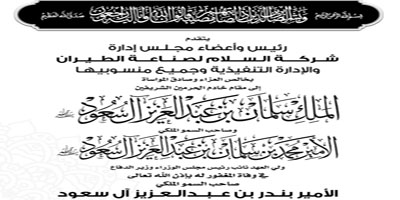 بسم الله الرحمن الرحيم
صدق الله العظيم
يتقدم
رئيس وأعضاء مجلس إدارة
شركة السلام لصناعة الطيران
والإدارة التنفيذية وجميع منسوبيها
بخالص العزاء وصادق المواساة
إلى مقام خادم الحرمين الشريفين
الملك سلمان بن عبدالعزيز آل سعود
وصاحب السمو الملكي
الأمير محمد بن سلمان بن عبدالعزيز آل سعود
ولي العهد نائب رئيس مجلس الوزراء وزير الدفاع
في وفاة المغفور له بإذن الله تعالى
صاحب السمو الملكي
الأمير بندر بن عبدالعزيز آل سعود